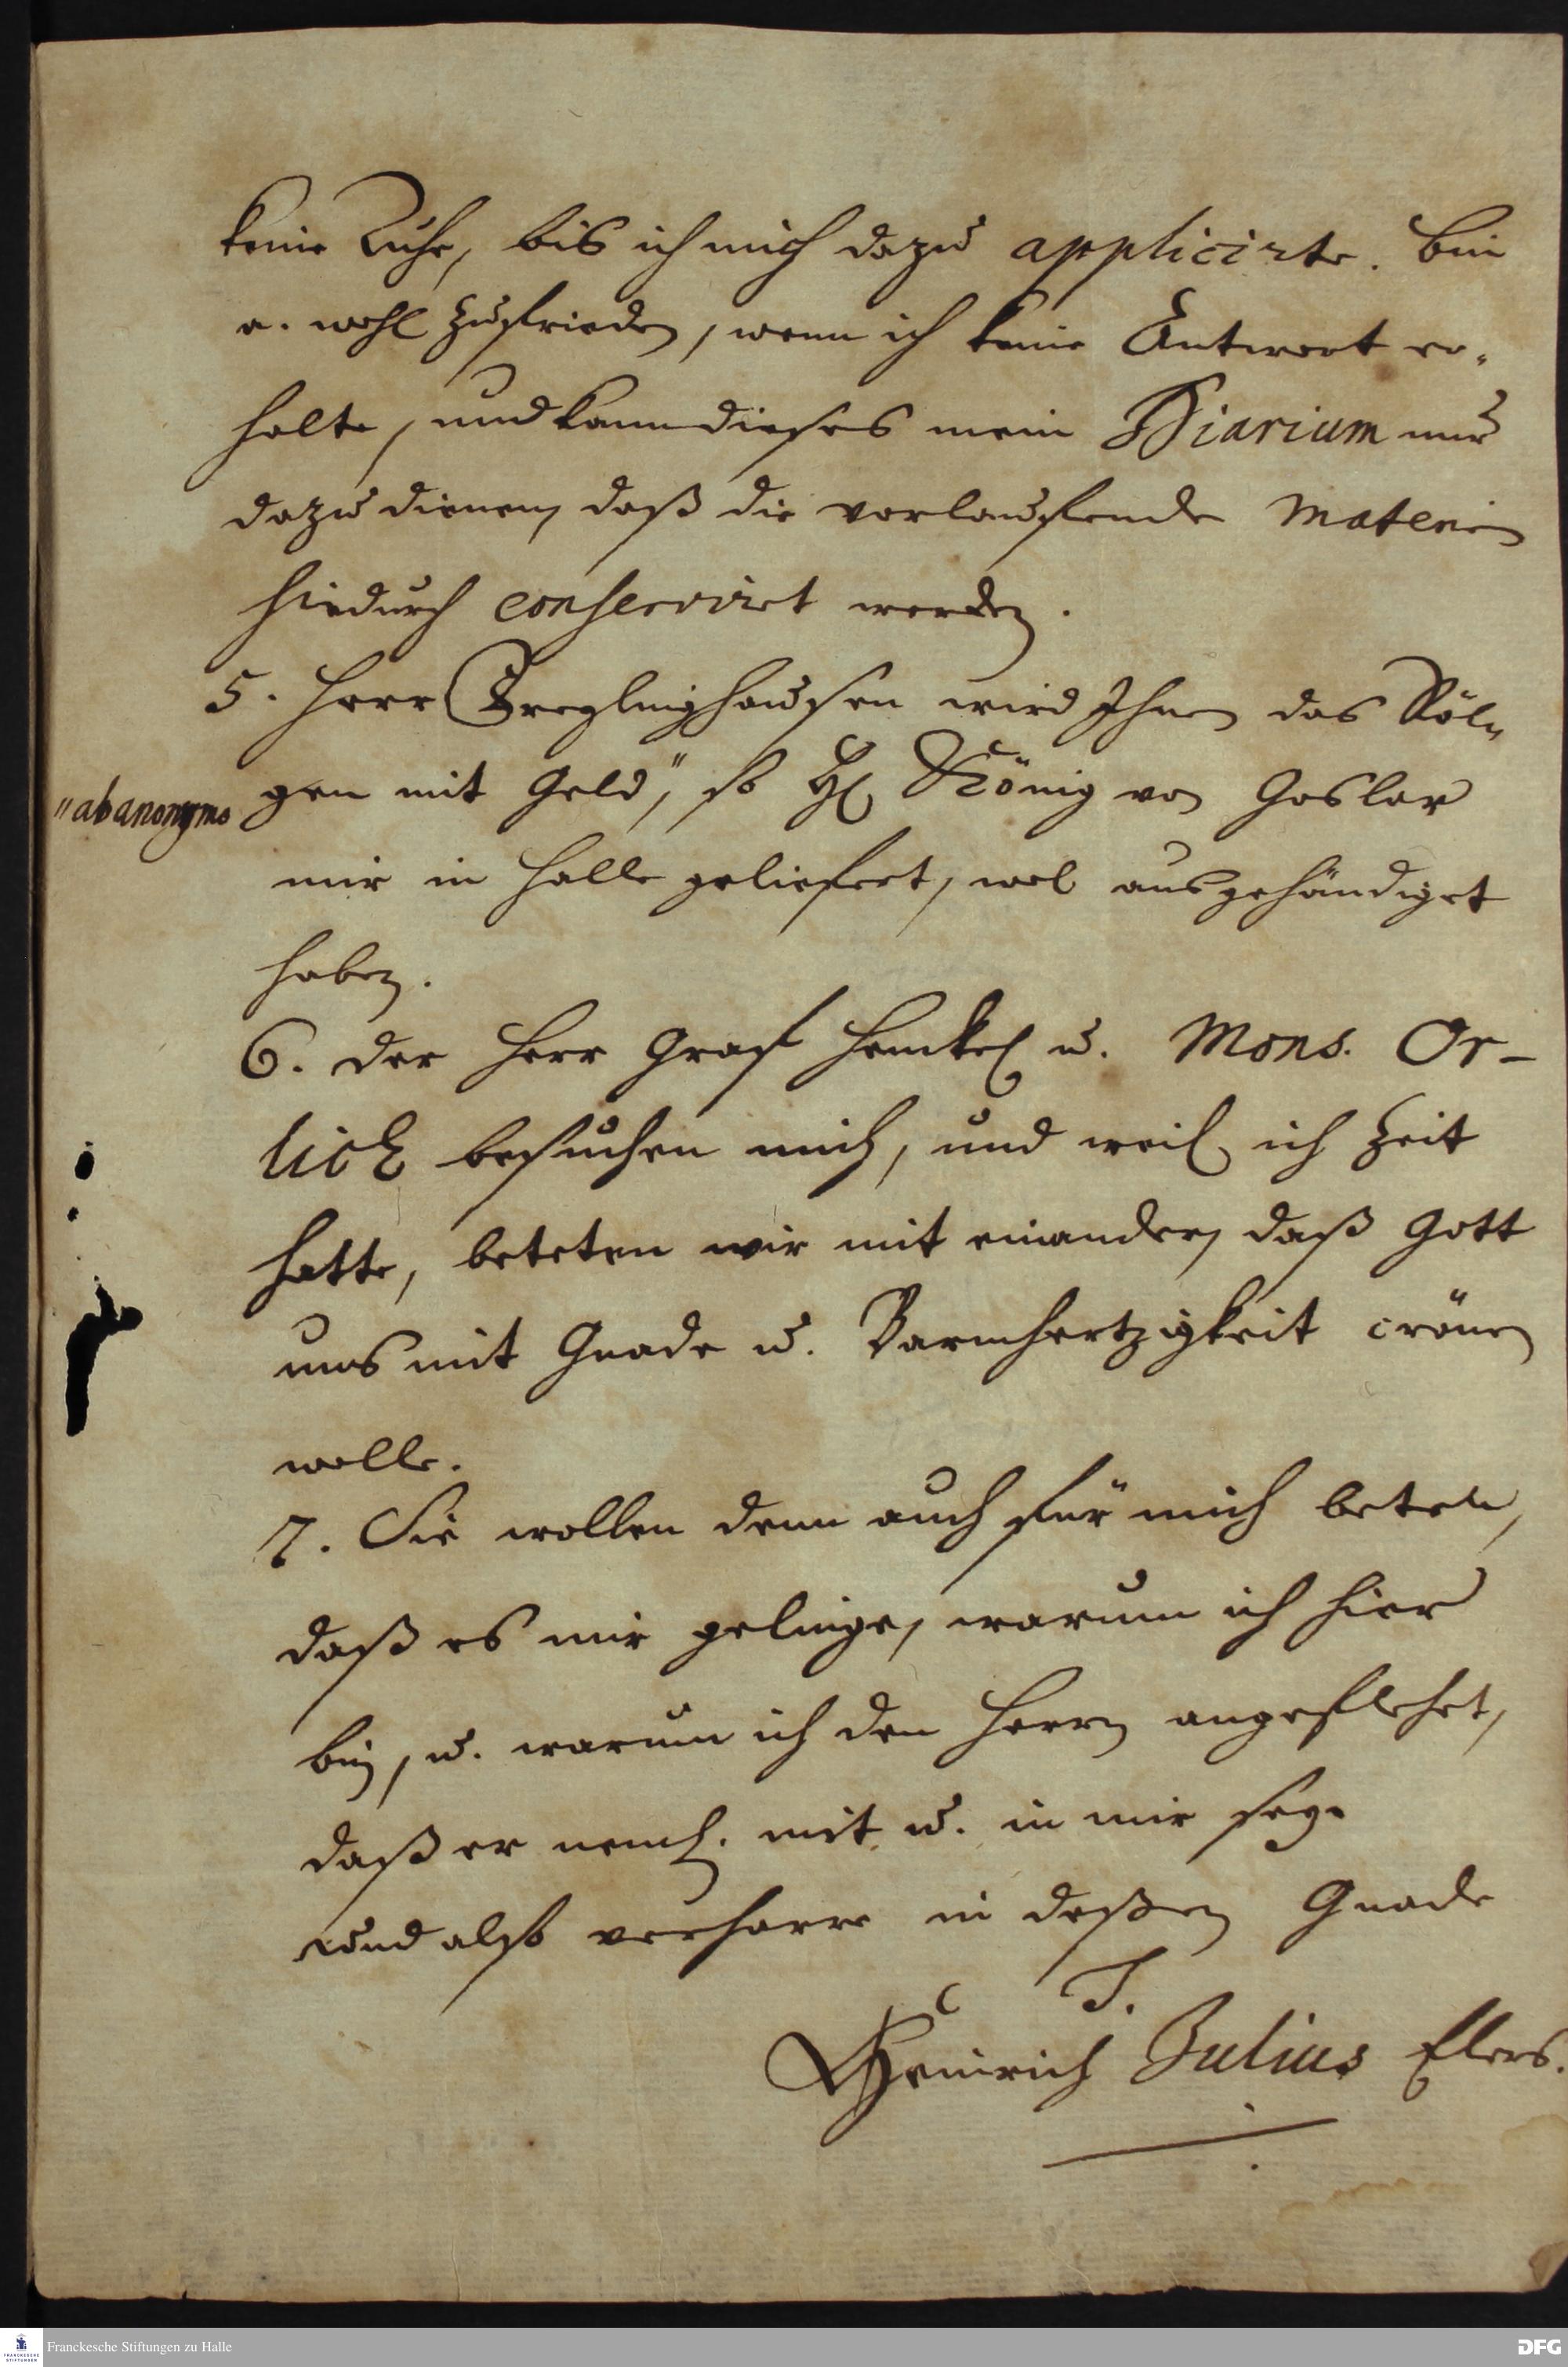 keine Ruhe, bis ich mich dazu applicirte. Bin
a. wohl zufrieden, wenn ich keine Antwort er-
halte, und kann dieses mein Diarium nur
dazu dienen, daß die vorlauffende Materien
hiedurch conserviret werden.
5. Herr Treglinghausen wird Ihnen das Röl-
gen mit Geld," so H. König von Goslar
"ab anonymo
mir in Halle geliefert, wol ausgehändiget
haben.
6. Der Herr Graf Henckel u. Mons. Or-
lich besuchen mich, und weil ich Zeit
hatte, beteten wir mit einander, daß Gott
uns mit Gnade u. Barmhertzigkeit crönen
wolle.
7. Sie wollen denn auch für mich beten,
daß es mir gelinge, warum ich hier
bin, u. warum ich den Herrn angeflehet,
daß er neml. mit u. in mir sey.
Und also verharre in deßen Gnade
Heinrich Julius Elers.
Franckesche Stiftungen zu Halle
FRANCKESCHE STIFTUNGEN
DFG